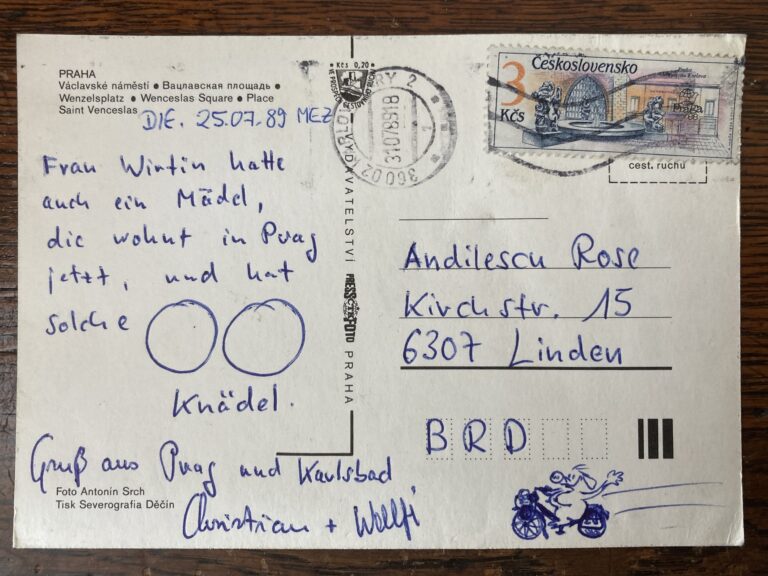 PRAHA
Václavské náměstí • Вацлавская площадь •
Wenzelsplatz • Wenceslas Square • Place
Saint Venceslas
DIE. 25.07.89 MEZ
Frau Wirtin hatte
auch ein Mädel,
die wohnt in Prag
jetzt, und hat
solche
Knädel.
Gruß aus Prag und Karlsbad
Christian + Wolfi
Foto Antonín Srch
Tisk Severografia Děčín
Kčs 0,20
VYDAVATELSTVÍ
PRESSFOTO
PRAHA
RY 2
360 02
Československo
3
Kčs
cest. ruchu
Andilescu Rose
Kirchstr. 15
6307 Linden
BRD